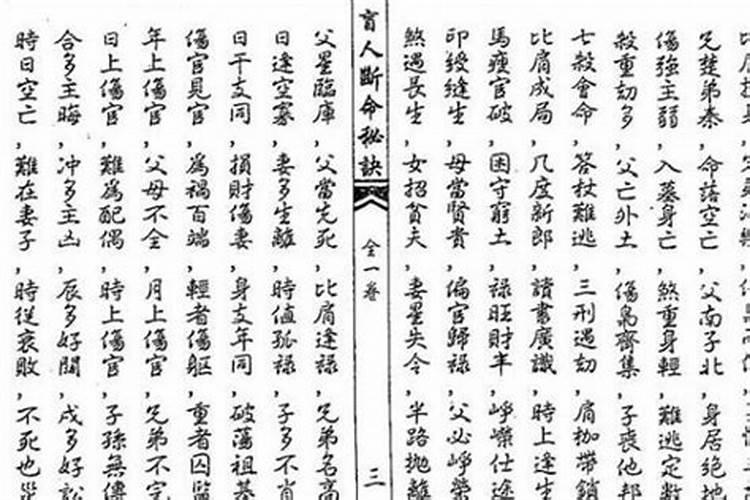 傷強主弱,入墓身亡,煞重身輕,難逃定數
殺重劫多,父亡外土,傷梟齊集,子喪他鄉
七殺會命,笞杖難逃,三刑遇劫,肩枷帶鎖
比肩成局,几度新郎,讀書廣識,時上逢生
馬瘦官破,困守窮土,祿旺財丰,崢嶸仕途
印綬逢生,母當賢貴,偏官歸祿,父必崢榮
煞遇長生,女招貧夫,妻星失令,半路拋離
盲人斷命秘訣 全一卷 三
父星臨庫,父當先死,比肩逢祿,兄弟名高
日逢空寡,妻多生離,時值孤祿,子多不肖
日干支同,損財傷妻,身支年同,破蕩祖基
傷官見官,為禍百端,輕者傷軀,重者囚監
年上傷官,父母不全,月上傷官,兄弟不完
日上傷官,難為配偶,時上傷官,子孫無傳
合多主晦,冲多主凶,辰多好鬪,戌多好訟
時日空亡,難在妻子,時從衰敗,不死也災